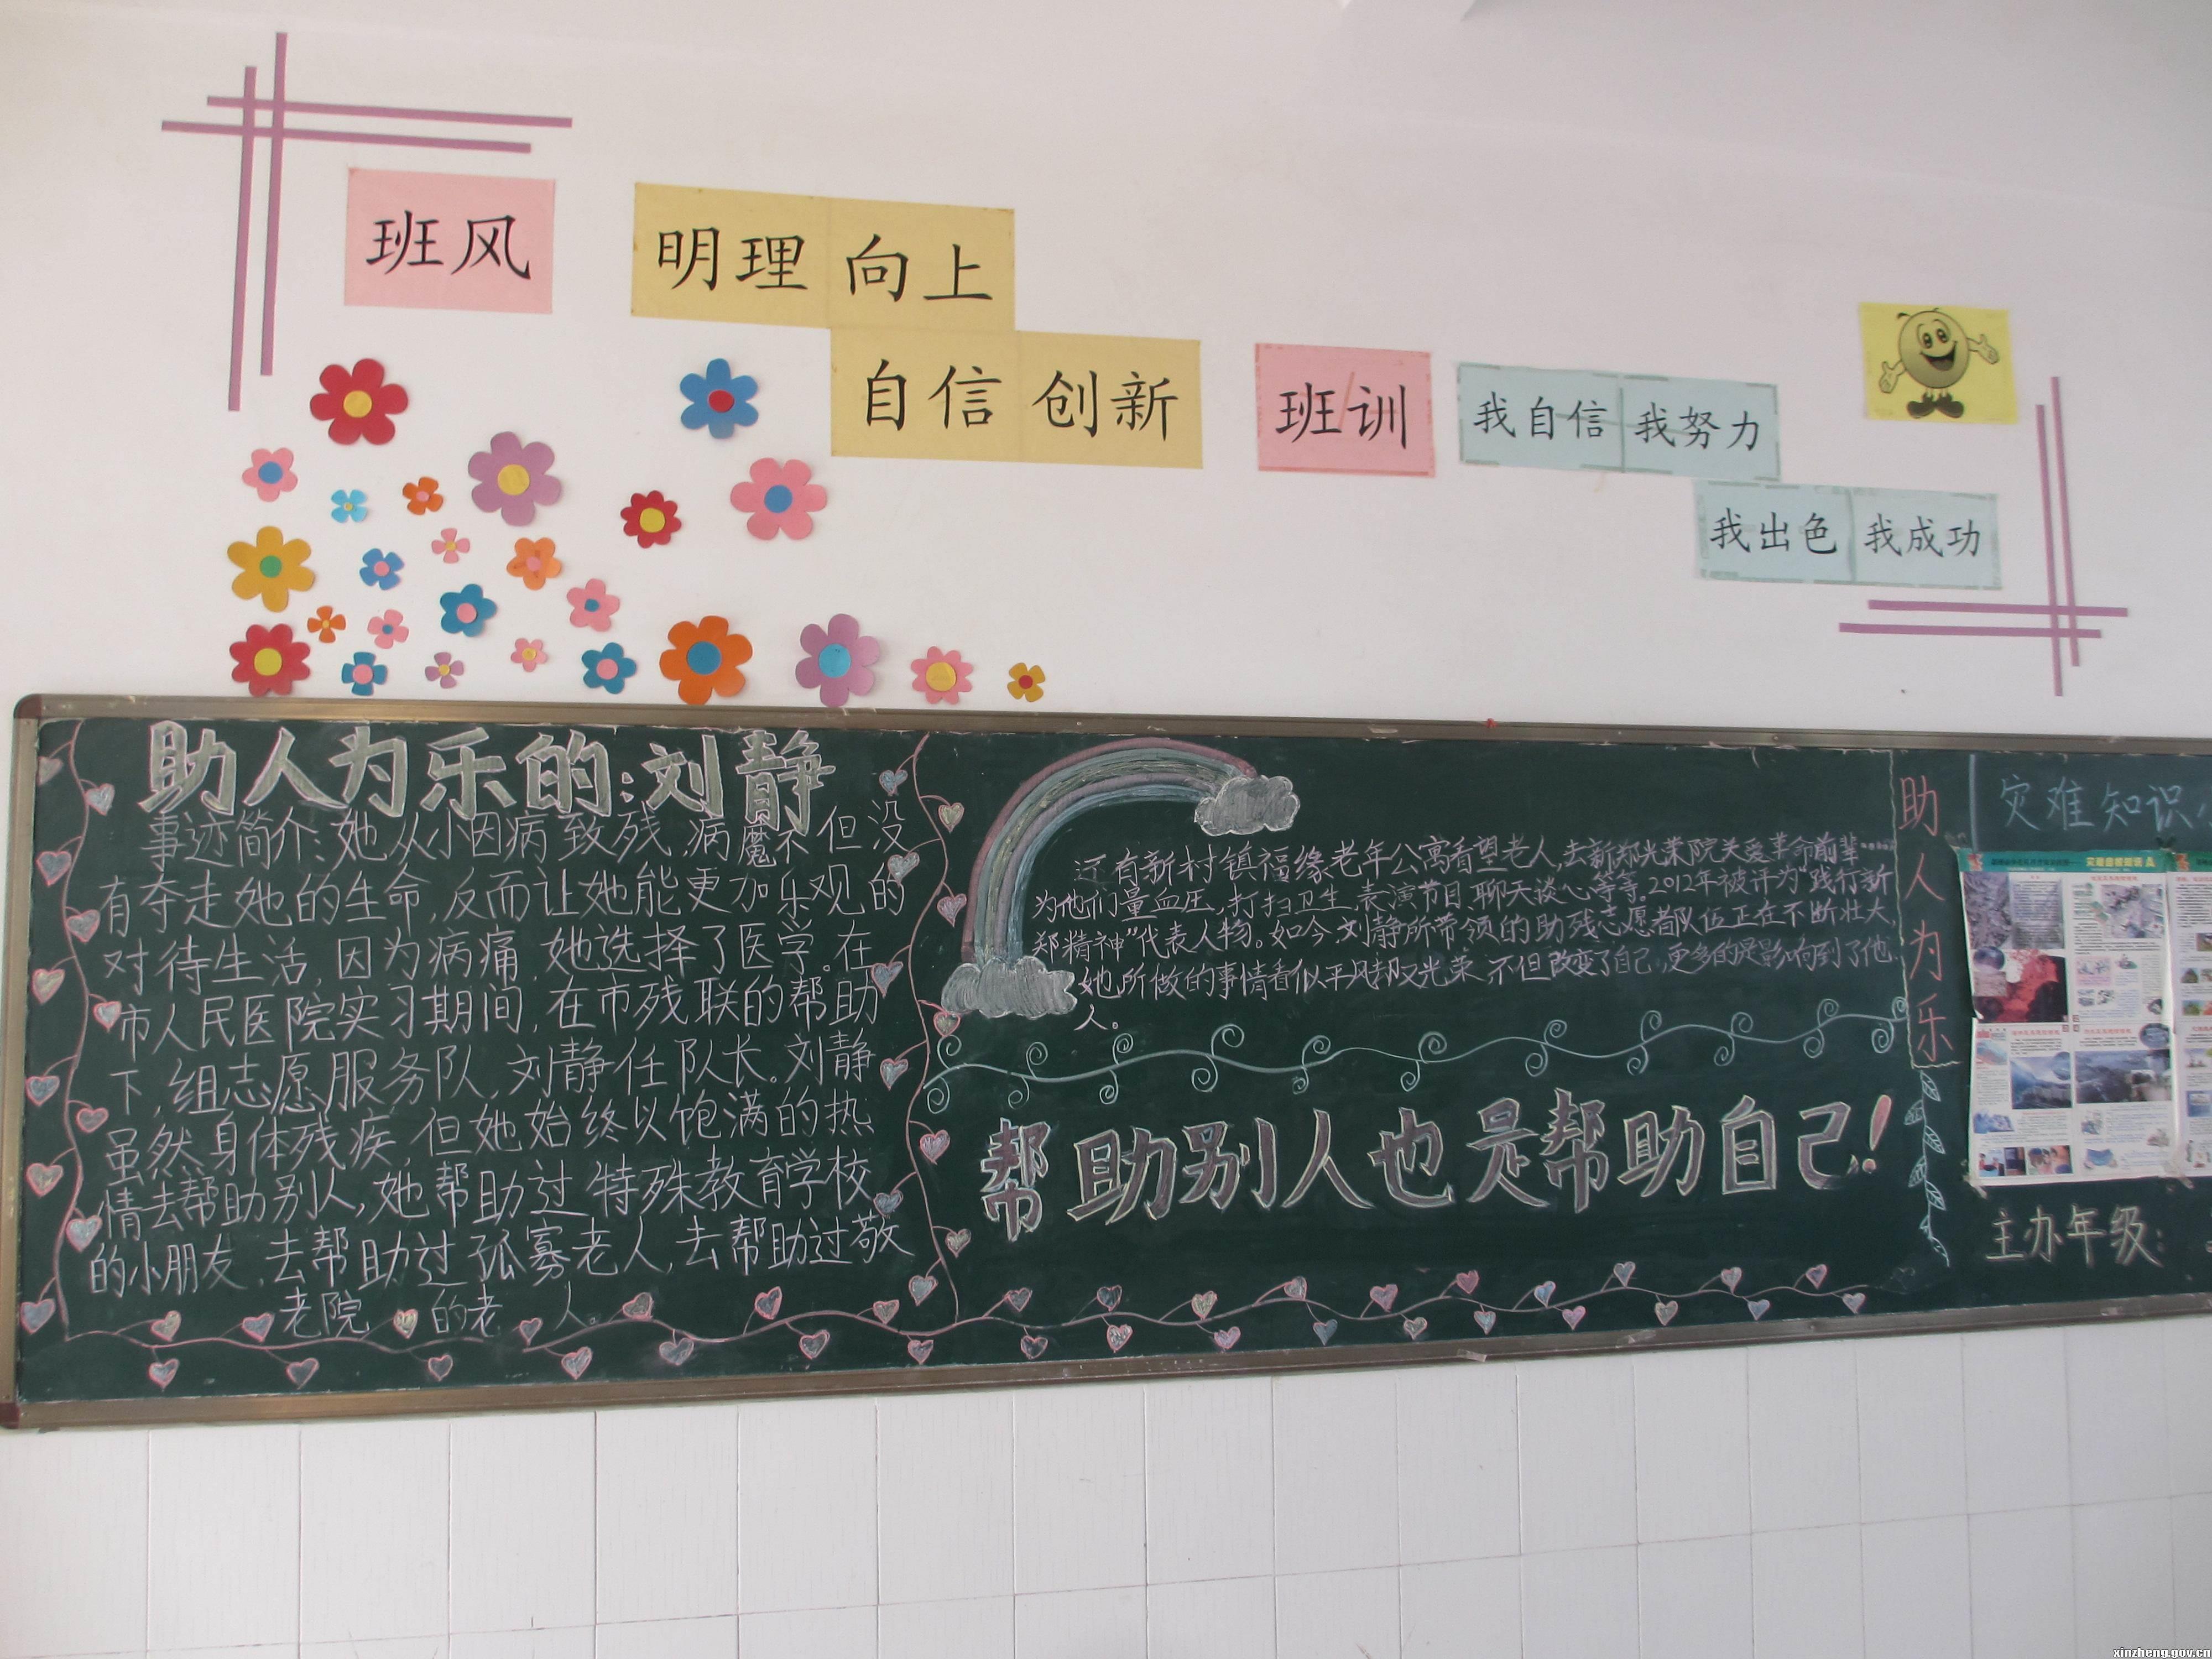 班风
明理 向上
自信 创新
班训
我自信 我努力
我出色 我成功
助人为乐的:刘静
事迹简介:她从小因病致残,病魔不但没
有夺走她的生命,反而让她能更加乐观的
对待生活,因为病痛,她选择了医学。在
市人民医院实习期间,在市残联的帮助
下,组志愿服务队,刘静任队长。刘静
虽然身体残疾,但她始终以饱满的热
情去帮助别人,她帮助过特殊教育学校
的小朋友,去帮助过孤寡老人,去帮助过敬
老院的老人。
还有新村镇福缘老年公寓看望老人,去新郑光荣院关爱革命前辈……
为他们量血压,打扫卫生,表演节目,聊天谈心等等。2012年被评为“践行新
郑精神”代表人物。如今,刘静所带领的助残志愿者队伍正在不断壮大,
她所做的事情看似平凡却又光荣,不但改变了自己,更多的是影响到了他
人。
帮助别人也是帮助自己!
助人为乐
灾难知识
主办年级:
xinzheng.gov.cn